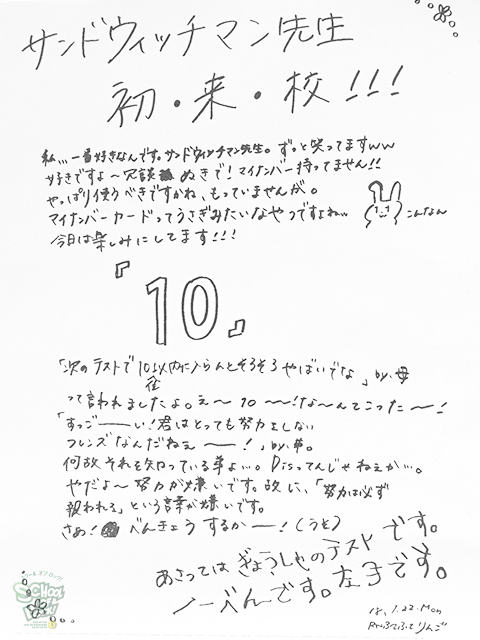 サンドウィッチマン先生
初・来・校!!!
私…一番好きなんです。サンドウィッチマン先生。ずっと笑ってますww
好きですよ〜冗談ぬきで!マイナンバー持ってません!!
やっぱり使うべきですかね、もっていませんが。
マイナンバーカードってうさぎみたいなやつですよねw
こんなん
今日は楽しみにしてます!!!
『10』
「次のテストで10位以内に入らんとそろそろやばいでな」by.母
って言われましたよ。え〜10〜!な〜んてこった〜!
「すっごーい!君はとっても努力をしない
フレンズなんだねぇー!」by.弟。
何故それを知っている弟よ…。Disってんじゃねぇか…。
やだよ〜努力が嫌いです。故に、「努力は必ず
報われる」という言葉が嫌いです。
さぁ!べんきょうするかー!(うそ)
あさってはぎょうしゃのテストです。
ノーべんです。左手です。
18.1.22.Mon
りんご
SCHOOL OF LOCK!